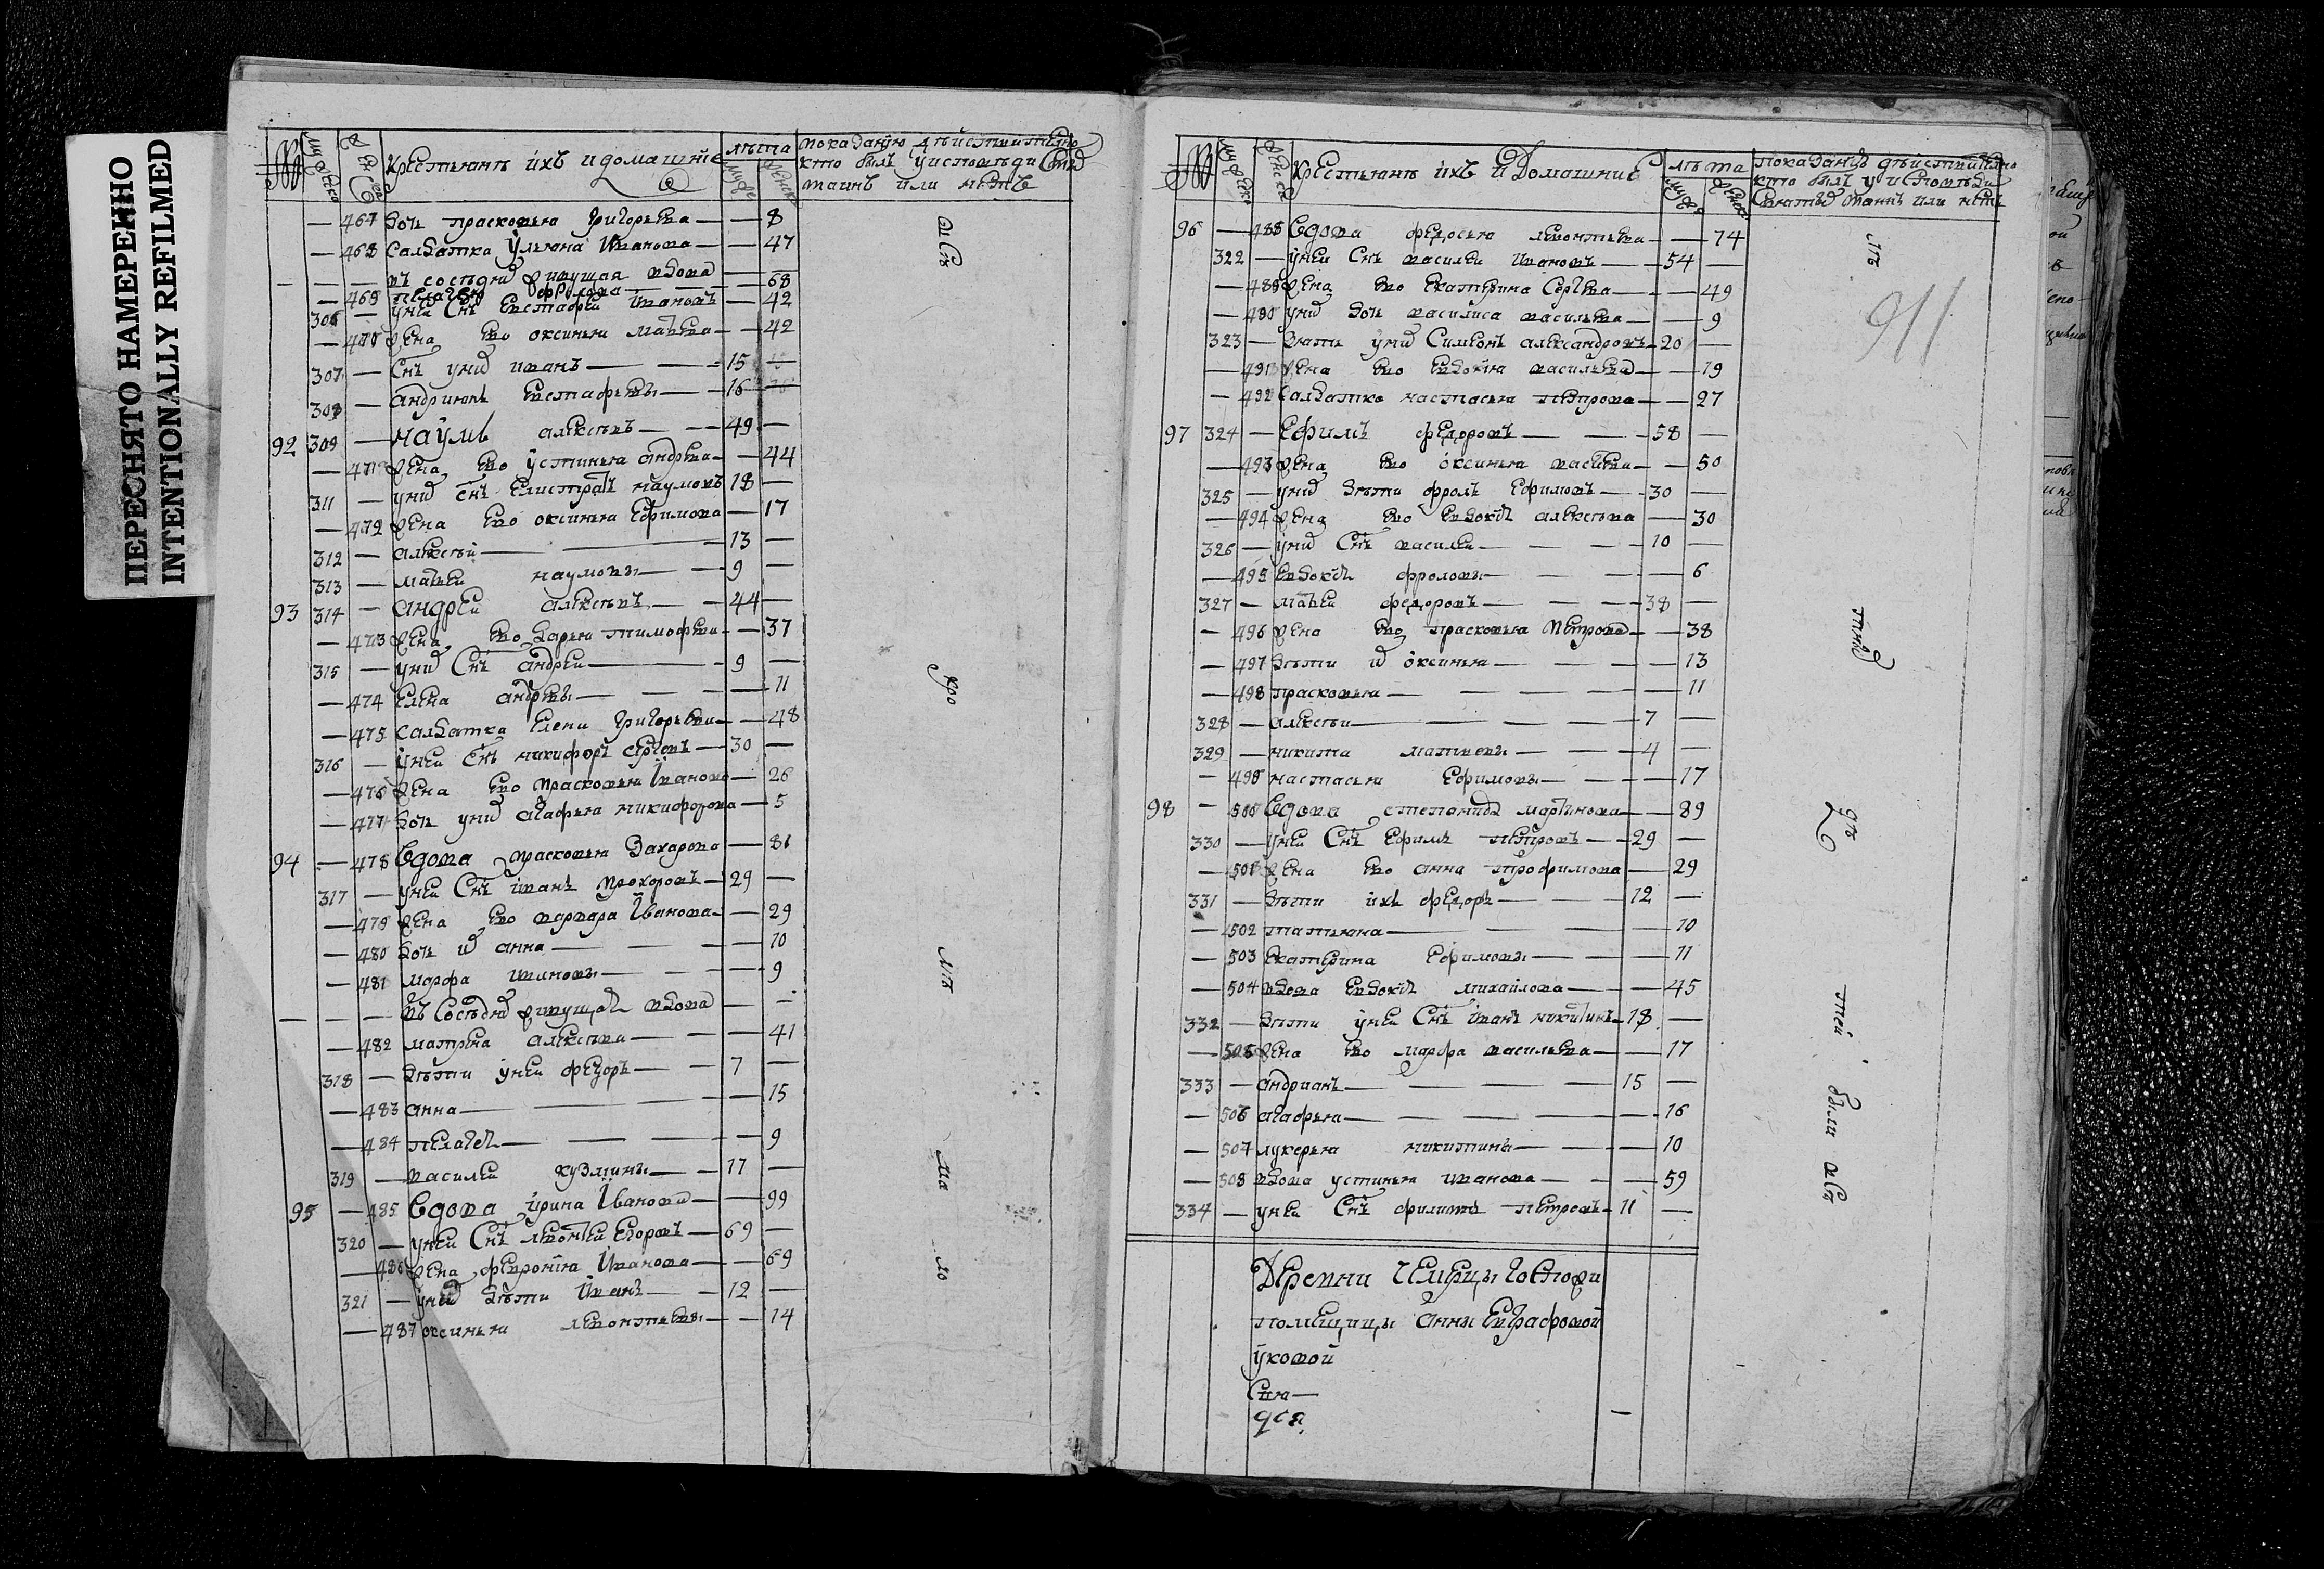 ПЕРЕСНЯТО НАМЕРЕННО
INTENTIONALLY REFILMED
Крестьянъ ихъ и домашние лѣта
кто былъ у исповѣди
таинъ или нѣтъ
— 467 Дочь Прасковья Григорьева — — 8
— 468 Салдатка Ульяна Иванова — — 47
— — — въ соседяхъ живущая вдова — —
— 469 Пелагея — 68
306 — унеи Снъ Евстафеи Ивановъ — 42
— 470 Жена ево Оксинья Матвева — — 42
307 — Снъ ихъ Иванъ — — 15 —
308 — Андриянъ Евстафьевы — 16 —
92 309 — Наумъ Алексѣевъ — — 49 —
— 471 Жена ево Устинья Андрева — — 44
311 — унихъ Снъ Елистратъ Наумовъ 18 —
— 472 Жена ево Оксинья Ефимова — 17
312 — Алексѣй — 13 —
313 — Матвеи Наумовы — — 9 —
93 314 — Андреи Алексѣевъ — — 44 —
— 473 Жена ево Дарья Тимофева — — 37
315 — унихъ Снъ Андреи — 9 —
— 474 Елена Андревы — — — 11
— 475 Салдатка Елена Григорьева — — 48
316 — унеи Снъ Никифоръ — 30 —
— 476 Жена ево Прасковья Иванова — 26
— 477 Дочь унихъ Агафья Никифорова — 5
94 — 478 Вдова Прасковья Захарова — 81
317 — унеи Снъ Иванъ Прохоровъ — 29 —
— 479 Жена ево Варвара Иванова — — 29
— 480 Дочь их Анна — — — 10
— 481 Марфа Ивановы — — — 9
— — — Въ Соседяхъ живущая вдова — —
— 482 Матрена Алексѣева — — — 41
318 — Дѣти унеи Федоръ — — 7 —
— 483 Анна — — — 15
— 484 Пелагея — — — — 9
319 — Василеи Кузмины — — 17 —
95 — 485 Вдова Ирина Иванова — — 99
320 — унеи Снъ Левонтеи Егоровъ — 69 —
— 486 Жена Феврония Иванова — — 69
321 — унихъ Дѣти Иванъ — — 12 —
— 487 Оксинья Левонтьевы — — 14
Крестьянъ ихъ и Домашние лѣта
кто былъ у исповѣди
Святыхъ таинъ или нѣтъ
911
96 — 488 Вдова Федосья Левонтьева — — 74
322 — унеи Снъ Василеи Ивановъ — — 54 —
— 489 Жена ево Екатерина Сергева — — 49
— 490 унихъ Дочь Василиса Васильева — — 9
323 — Зять унихъ Симеонъ Александровъ — 20 —
— 491 Жена ево Евдокия Васильева — — 19
— 492 Салдатка Настасья Петрова — — 27
97 324 — Ефимъ Федоровъ — — 58 —
— 493 Жена ево Оксинья — — 50
325 — унихъ Дѣти Фролъ Ефимовъ — 30 —
— 494 Жена ево Евдокия Алексѣева — 30
326 — унихъ Снъ Василеи — — — 10 —
— 495 Евдокия Фроловы — — — 6
327 — Матвеи Федоровъ — — — 38 —
— 496 Жена ево Прасковья Петрова — — 38
— 497 Дѣти их Оксинья — — — 13
— 498 Прасковья — — — — 11
328 — Алексѣи — — — — 7 —
329 — Никита Матвеевы — — — 4 —
— 499 Настасья Ефимовы — — — 17
98 — 500 Вдова Степанида Мартинова — — 89
330 — унеи Снъ Ефимъ Петровъ — — 29 —
— 501 Жена ево Анна Трофимова — 29
331 — Дѣти ихъ Федоръ — — — 12 —
— 502 Татьяна — — — 10
— 503 Екатерина Ефимовы — — — 11
— 504 Вдова Евдокия Михайлова — — 45
332 — Дѣти унеи Снъ Иванъ Никитинъ — 18 —
— 505 Жена ево Марфа Васильева — — 17
333 — Андриянъ — — — — 15 —
— 506 Агафья — — — — 16
— 507 Лукерья Никитины — — — 10
— 508 Вдова Устинья Иванова — — — 59
334 — унеи Снъ Филиппъ Петровъ — 11 —
Деревни Госпожи
помещицы Анны Евграфовой